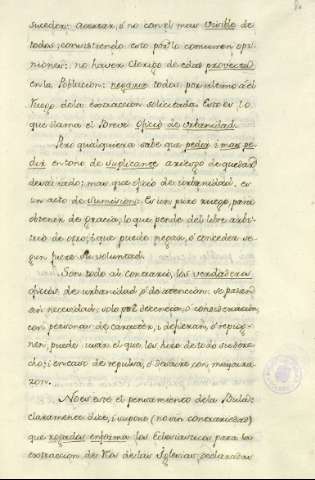 suceder: acertar, ó no con el mas visible de
todos; consistiendo esto por lo comun en opi-
niones: no haver Clerigo de edad provecta
en la Poblacion: negarse todos por ultimo al
Ruego de la extraccion solicitada. Esto es lo
que llama el Breve oficio de urbanidad.
Pero qualquiera sabe que pedir i mas pe-
dir en tono de Suplicante a riesgo de quedar
desairado; mas que oficio de urbanidad, es
un acto de Sumision: Es un puro ruego, para
obtener de gracia, lo que pende del libre arbi-
trio de otro, i que puede negar, ó conceder se-
gun fuere su voluntad.
Son todo al contrario, los verdaderos
oficios de urbanidad ó de atencion: se pasan
sin necesidad, solo por decencia, ó consideracion,
con personas de caracter, i defieran, ó repug-
nen, puede usar el que los hizo de todo su dere-
cho; i en caso de repulsa, ó desaire con mayor ra-
zon.
No es este el pensamiento de la Bula:
claramente dice, i supone (no sin contrariedad)
que rogados en forma los Eclesiasticos para la
extraccion de Reos de las Iglesias,